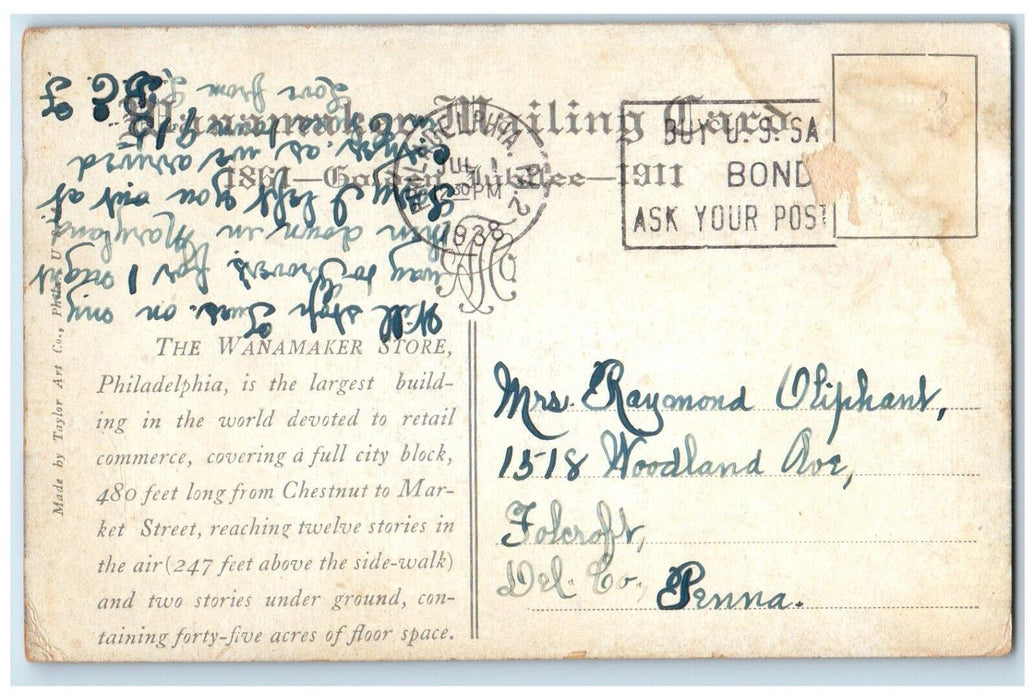 Wanamaker Mailing Card
1861—Golden Jubilee—1911
PHILADELPHIA, PA. 2
JUL 1
30 PM
1938
BUY U.S. SA
BOND
ASK YOUR POST
Made by Taylor Art Co., Phila
THE WANAMAKER STORE,
Philadelphia, is the largest build-
ing in the world devoted to retail
commerce, covering a full city block,
480 feet long from Chestnut to Mar-
ket Street, reaching twelve stories in
the air (247 feet above the side-walk)
and two stories under ground, con-
taining forty-five acres of floor space.
Mrs. Raymond Oliphant,
1518 Woodland Ave,
Folcroft,
Del. Co., Penna.
Will stop Tues. on my
way to Grove's, for I
him down in Maryland
I left you out at
as we arrived
in town
Love from